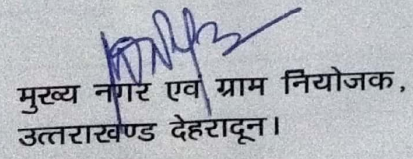 मुख्य नगर एवं ग्राम नियोजक,
उत्तराखण्ड देहरादून।